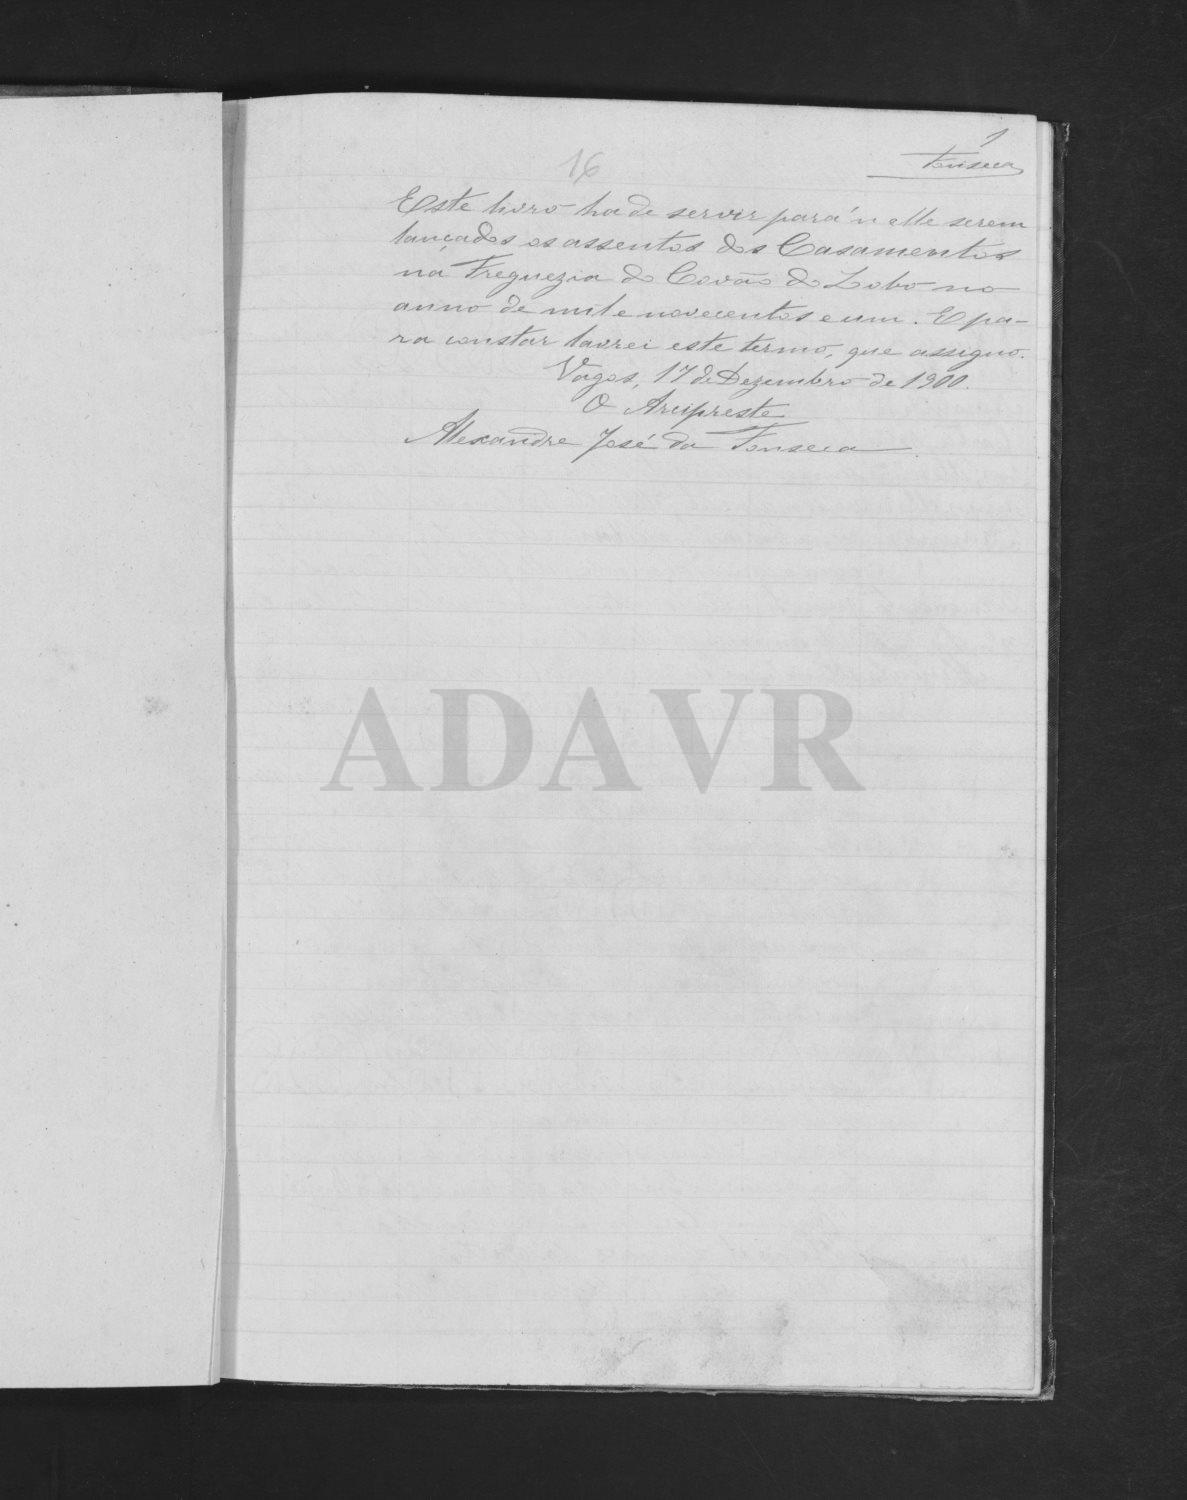 1
Fonseca
16
Este livro ha de servir para n'elle serem
lançados os assentos dos Casamentos
na Freguezia do Covão do Lobo no
anno de mil e novecentos e um. E pa-
ra constar lavrei este termo, que assigno.
Vagos, 17 de Dezembro de 1900.
O Arcipreste
Alexandre José da Fonseca.
ADAVR